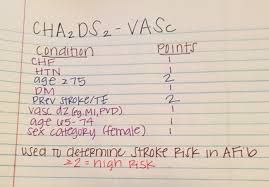 CHA2DS2-VASc
Condition Points
CHF 1
HTN 1
age ≥75 2
DM 1
prev stroke/TE 2
vasc dz (eg. MI, PVD) 1
age 65-74 1
sex category (female) 1
used to determine stroke risk in AFib
≥2 = high risk